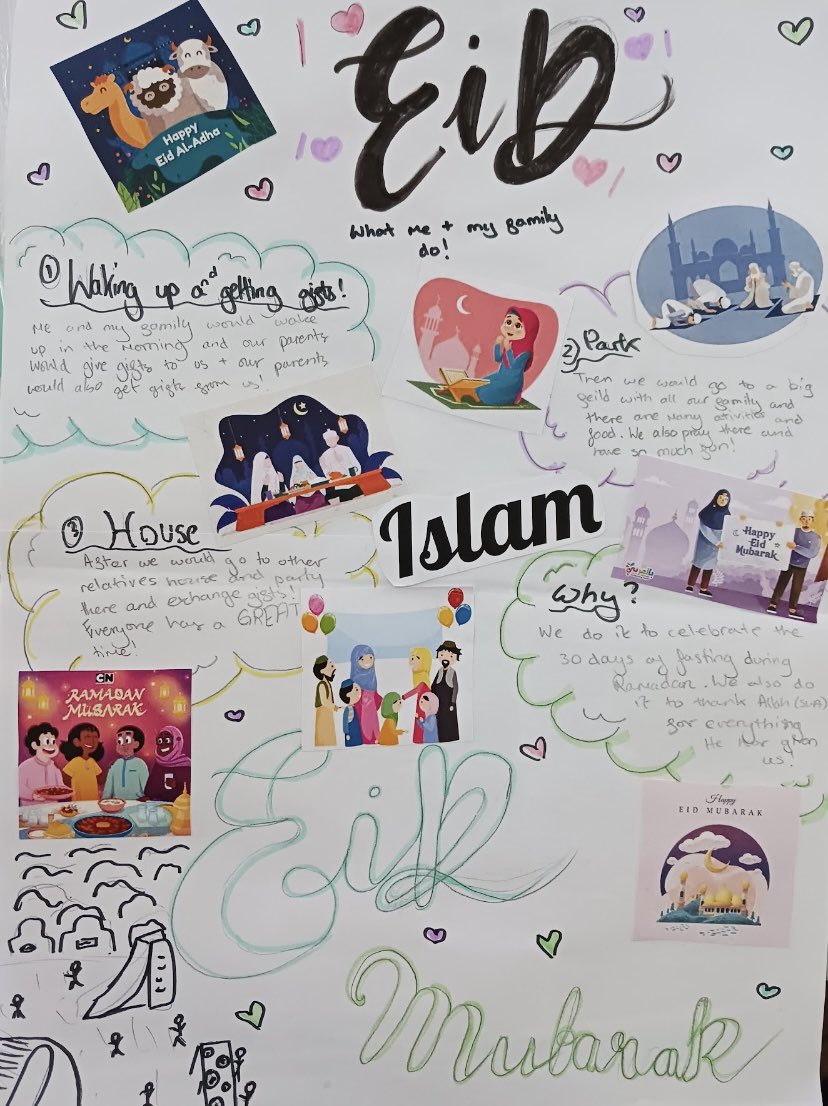 Happy
Eid Al-Adha
EiD
What me + my family
do!
① Waking up and getting gifts!
Me and my family would wake
up in the morning and our parents
would give gifts to us + our parents
would also get gifts from us!
2) Park
Then we would go to a big
feild with all our family and
there are many ativities and
food. We also pray there and
have so much fun!
③ House
After we would go to other
relatives house and party
there and exchange gifts!
Everyone has a GREAT
time!
Islam
Happy
Eid
Mubarak
Why?
We do it to celebrate the
30 days of fasting during
Ramadan. We also do
it to thank Allah (SWA)
for everything
He has given
us!
CN
RAMADAN
MUBARAK
Happy
EID MUBARAK
Eid
Mubarak